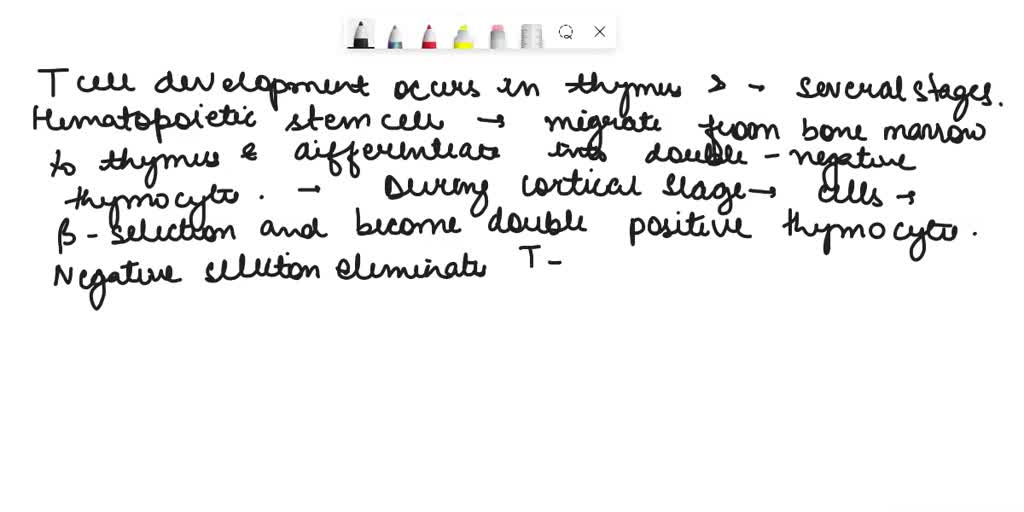 T cell development occurs in thymus > → several stages.
Hematopoietic stem cell → migrate from bone marrow
to thymus & differentiate into double-negative
thymocyte. → During cortical stage → cells →
β-selection and become double positive thymocyte.
Negative selection eliminate T-